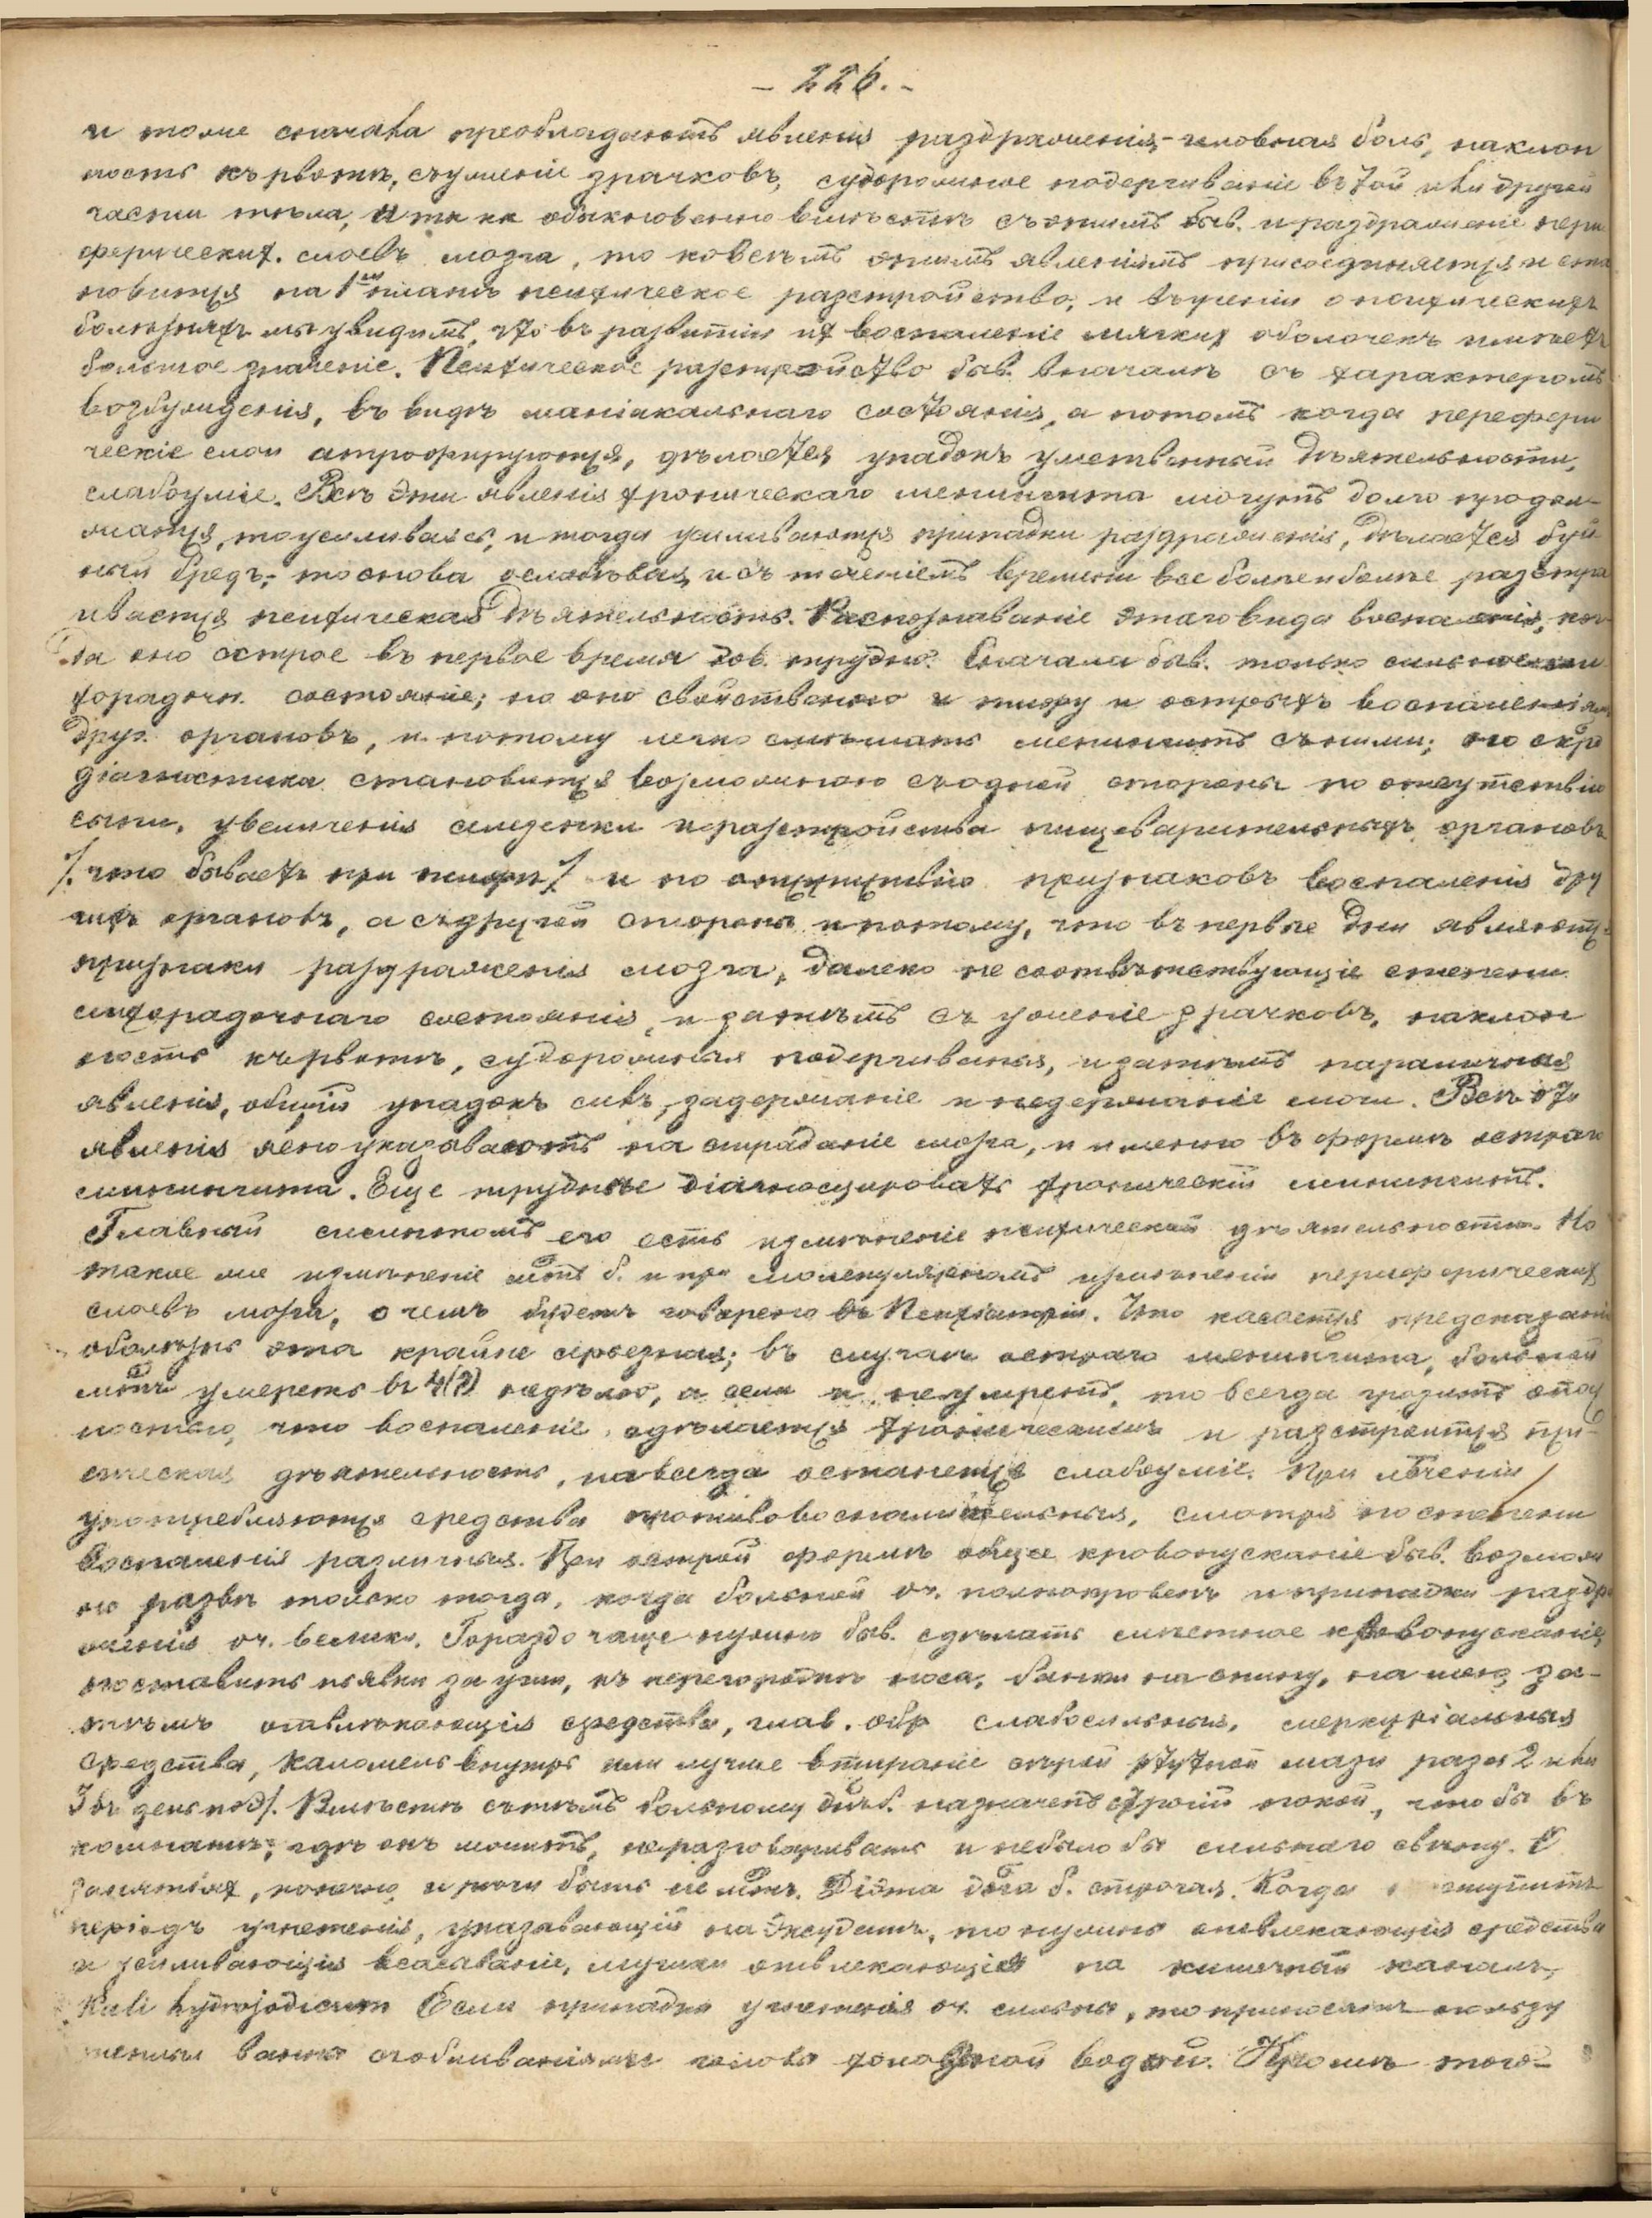 - 226. -
и тоже сначала преобладаютъ явленія раздраженія - головная боль, наклон
ность къ рвотѣ, съуженіе зрачковъ, судорожное подергиваніе въ той или другой
части тѣла, и та къ обыкновенно вмѣстѣ съ этимъ быв. и раздраженіе пери
ферическихъ слоевъ мозга, то ко всѣмъ этимъ явленіямъ присоединяется и ста
новится на 1ый планъ психическое разстройство; и въ ученіи о психическихъ
больныхъ мы увидимъ, что въ развитіи ихъ воспаленіе мягкихъ оболочекъ имѣетъ
большое значеніе. Психическое разстройство быв. вначалѣ съ характеромъ
возбужденія, въ видѣ маніакальнаго состоянія, а потомъ когда перефери
ческіе слои атрофируются, дѣлается упадокъ умственной дѣятельности,
слабоуміе. Всѣ эти явленія хроническаго менингита могутъ долго продол-
жаться, то усиливаясь, и тогда усиливаются припадки раздраженія, дѣлается буй
ный бредъ; то снова ослабѣвая, и съ теченіемъ времени все болѣе и болѣе разстра
ивается психическая дѣятельность. Распознаваніе этаго вида воспаленія, ког
да оно острое въ первое время дов. трудно. Сначала быв. только сильное
хорадочн. состояніе; но оно свойственно и тифу и острымъ воспаленіям
друг. органовъ, и потому легко смѣшать менингитъ съ ними; но скоро
діагностика становится возможною съ одной стороны по отсутствію
сыпи, увеличенія селезенки и разстройства пищеварительныхъ органовъ
/: что бываетъ при тифѣ :/ и по отсутствію признаковъ воспаленія дру
гихъ органовъ, а съ другой стороны и потому, что въ первые дни являются
признаки раздраженія мозга, далеко не соотвѣтствующіе степени
лихорадочнаго состоянія, и затѣмъ съуженіе зрачковъ, наклон
ность къ рвотѣ, судорожныя подергиванія, и затѣмъ параличныя
явленія, общій упадокъ силъ, задержаніе и недержаніе мочи. Всѣ эти
явленія ясно указываютъ на страданіе мозга, и именно въ формѣ остраго
менингита. Еще труднѣе діагносцировать хроническій менингитъ.
Главный симптомъ его есть измѣненіе психической дѣятельности. Но
такое же измѣненіе мож. б. и при молекулярномъ измѣненіи периферическихъ
слоевъ мозга, о чемъ будетъ говорено въ Психіатріи. Что касается предсказанія
оболѣзнь эта крайне серьезная; въ случаѣ остраго менингита, больной
можетъ умереть въ 4(?) недѣлю, а если и не умретъ, то всегда грозитъ опас
ностью, что воспаленіе сдѣлается хроническимъ и разстроится пси-
хическая дѣятельность, навсегда останется слабоуміе. При лѣченіи
употребляются средства противовоспалительныя, смотря по степени
воспаленія различныя. При острой формѣ общее кровопусканіе быв. возмож
но развѣ только тогда, когда больной оч. полнокровенъ и припадки раздра
женія оч. велики. Гораздо чаще нужно быв. сдѣлать мѣстное кровопусканіе,
поставить піявки за уши, къ перегородкѣ носа, банки на спину, на шею, за-
тѣмъ отвлекающія средства, глав. обр слабосильныя, меркуріальныя
средства, каломель внутрь или лучше втираніе сѣрой ртутной мази раза 2 или
3 въ день по Э/. Вмѣстѣ съ тѣмъ больному д. б. назначенъ строгій покой, чтобы въ
комнатѣ, гдѣ онъ лежитъ, не разговаривали и небыло бы сильнаго свѣту.
занятіяхъ, конечно и рѣчи быть не мож. Діэта д. б. строгая. Когда наступитъ
періодъ угнетенія, указывающій на эксудатъ, то нужно отвлекающія средства
и усиливающія всасываніе, мушки отвлекающія на кишечный каналъ,
Kali hydrojodicum Если припадки угнетенія оч. сильны, то приносятъ пользу
теплыя ванны со обливаніями головы холодной водой. Кромѣ того-